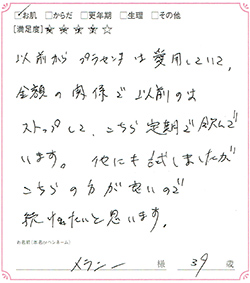 ☑お肌 □からだ □更年期 □生理 □その他
[満足度]★★★★☆
以前からプラセンタは愛用していて、
金額の関係で以前のは
ストップして、こちら定期で飲んで
います。他にも試しましたが
こちらの方が良いので
続けたいと思います。
お名前(本名orペンネーム)
メラニー 様 39 歳